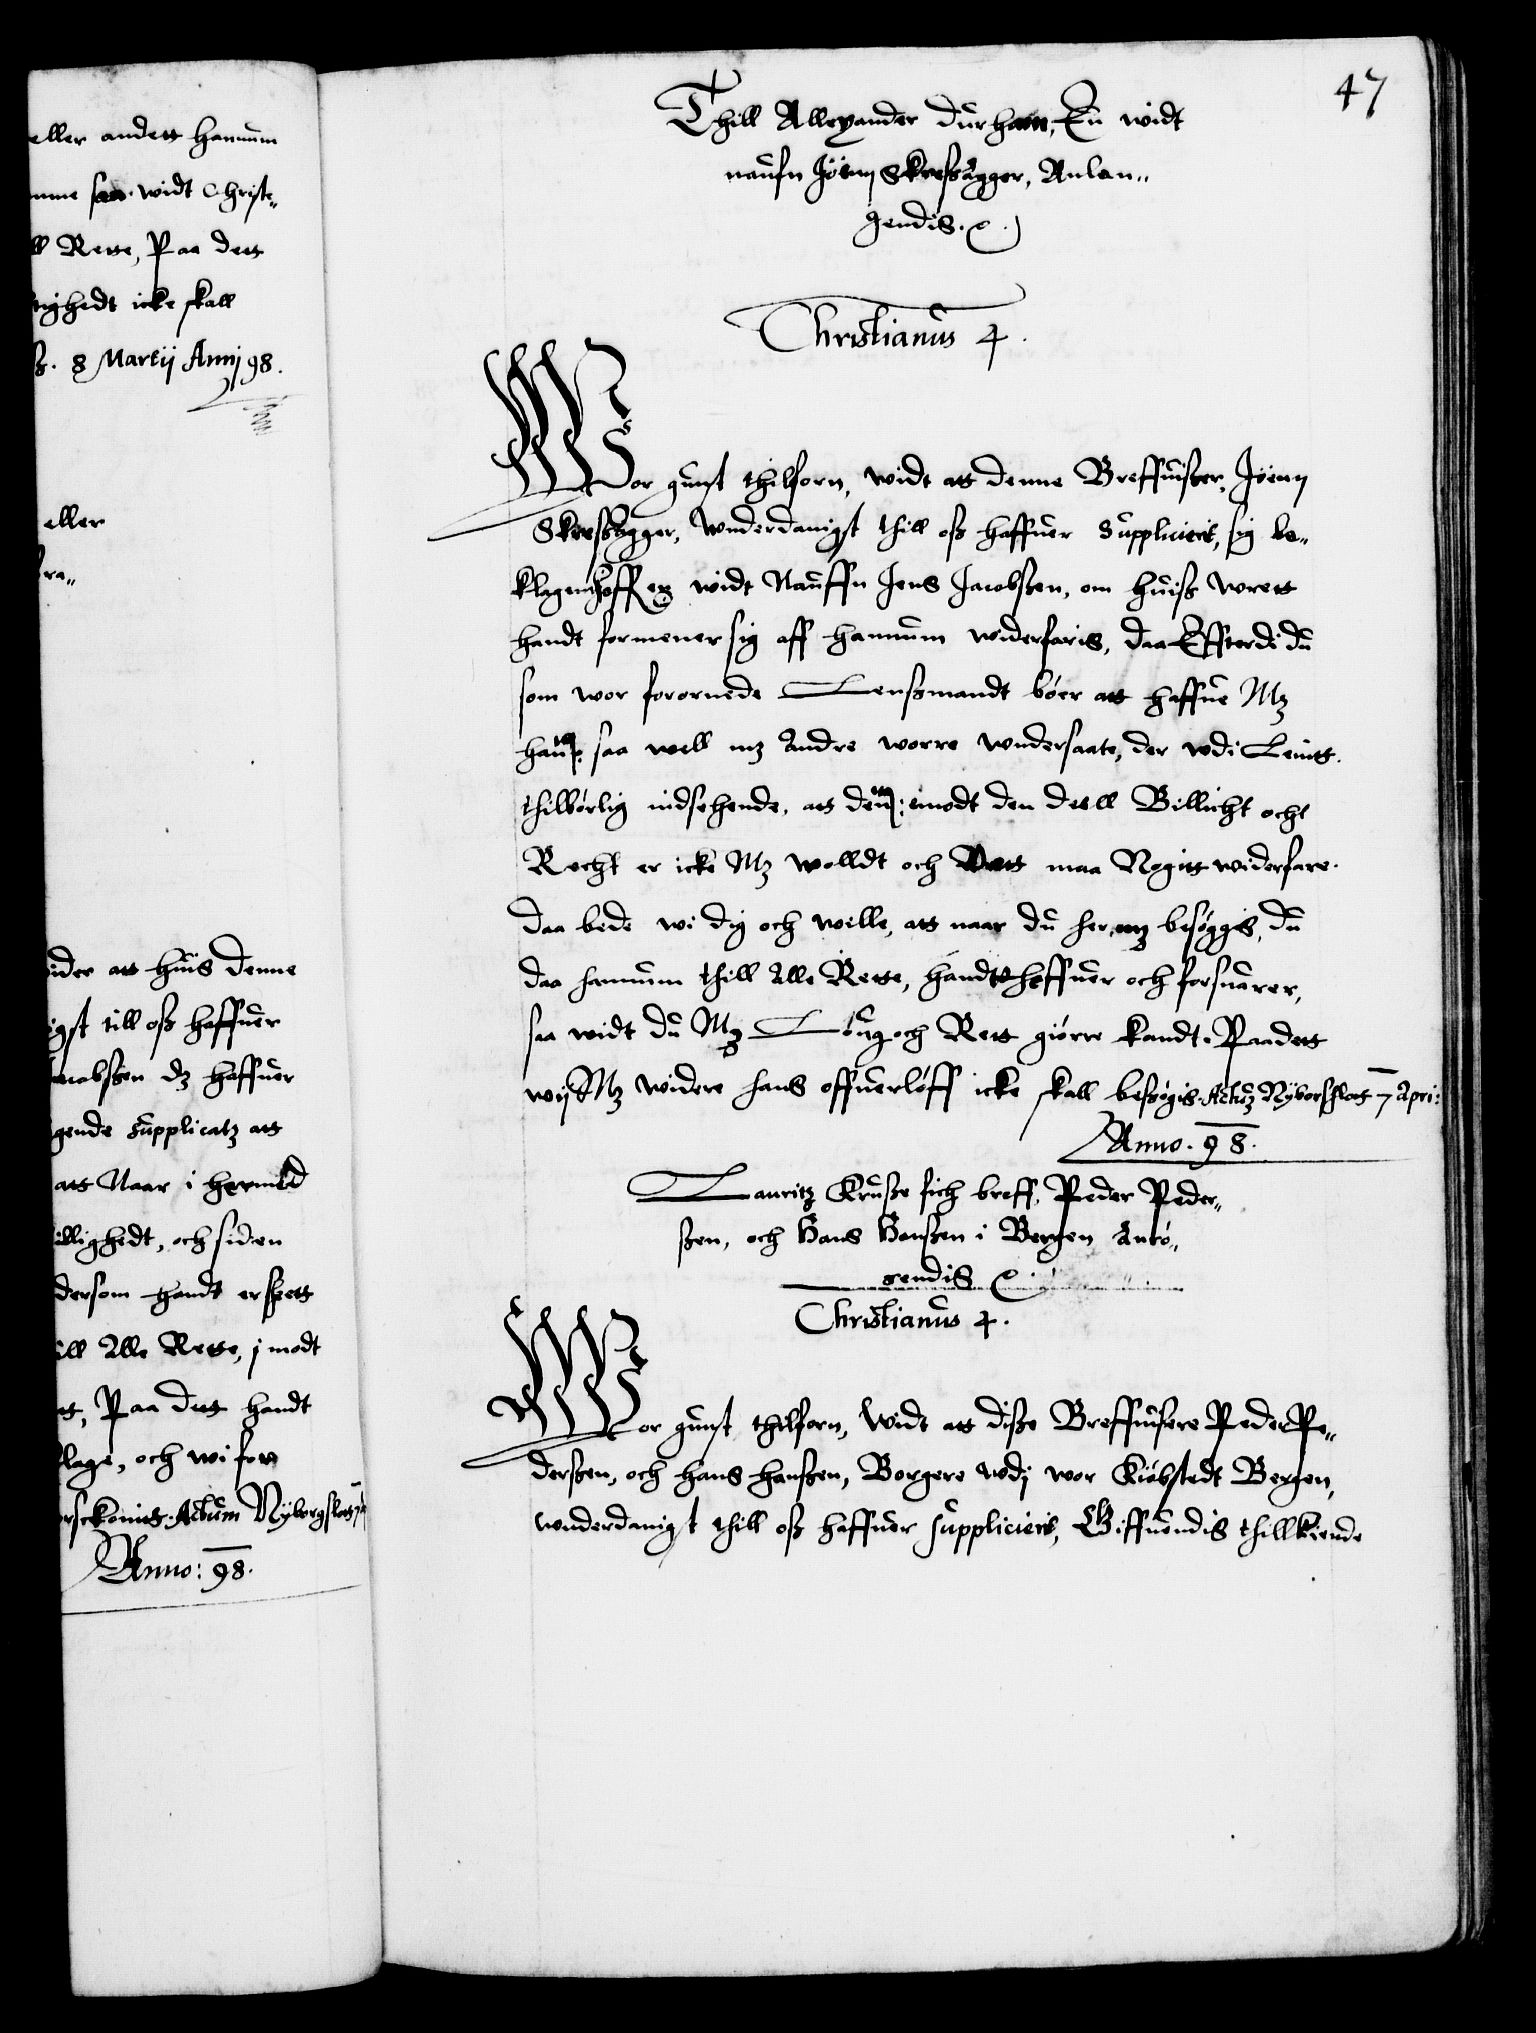 eller andett hannum
mme saa widt Christe„
ll Rette, Paa dett
tighedt icke skall
ß. 8 Martij Annj 98.
eller
fra„
ider att huis denne
igst till oß haffuer
Jacobßen dz haffuer
gende supplicatz att
att Naar i hermed
illighedt, och siden
dersom handt er skett
till Alle Rette, j modt
tt, Paa dett handt
klage, och wi for
Actum Nyborgslott
Anno: 98.
47
Thill Allexander Durham, En widt
naufn Jörenn Skreßögger, Anlan„
gendis.
Christianus 4.
Wor gunst thilforn, widt att denne Breffuißer, Jörenn
Skreßögger, wnderdanigst thill oß haffuer Suppliciert, sig be„
klagendt offuer en widt Nauffn Jens Jacobßen, om huiß wrett
handt formener sig aff hannum widerfaris, daa Effterdi du
som wor forornede Lenßmandt böer att haffue Mz
saa well mz Andre worre wndersaate, der wdi Lenitt.
thilbörlig indsehende, att imodt den dell Billicht och
Recht er icke Mz wolldt och Wrett maa Nogitt widerfare.
daa bede wi dig och wille, att naar du her mz besöggis, du
daa hannum thill Alle Rette, handtheffuer och forsuarer,
saa widt du Mz Loug och Rett giörre kandt. Paa dett
wij Mz widere hans offuerlöff icke skall besögis. Actum Nyborslott 7 Apri:
Anno. 98.
Lauritz Kruße fich breff, Peder Peder„
ßen, och Hans Hanßen i Bergen Anrö„
rendis
Christianus 4.
Wor gunst thilforn, Widt att diße Breffuisere Peder Pe„
derßen, och Hans Hanßen, Borgere wdj wor Kiöbstedt Bergen,
wnderdanigst thill oß haffuer suppliciert, Giffuendis thillkiende